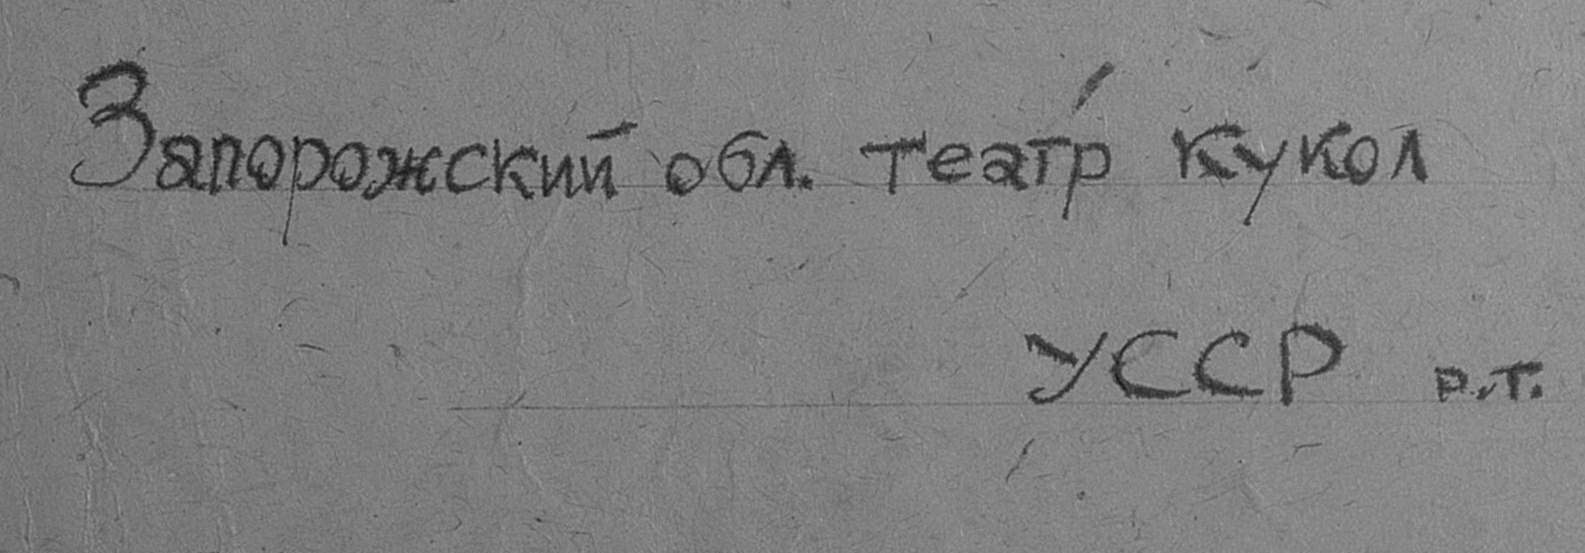 Запорожский обл. театр кукол
УССР р.т.